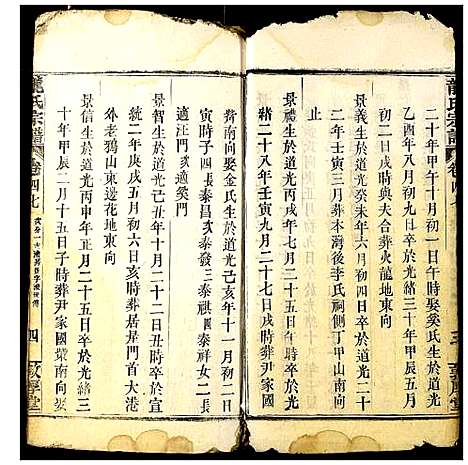 龍氏宗譜
二十年甲午十月初一日午時娶奚氏生於道光
乙酉年八月初八日卒於光緒三十年甲辰五月
初二日戌時合葬火龍地東向
景義生於道光癸未年六月初四日卒於道光二十
二年壬寅三月葬本灣後李氏祠側丁甲山南向
止
景禮生於道光丙戌年七月二十五日卒於光
緒二十八年壬寅二月二十七日戌時葬尹家國
南向娶金氏生於道光己亥年十一月初二日
寅時子四長泰昌次泰發三泰祺四泰祥女二長
適汪門次適奚門
景智生於道光己丑年十月二十二日丑時卒於宣
統二年庚戌五月初六日亥時葬居是門首大港
外老鴉山東邊花地東向
景信生於道光丙申年正月二十五日卒於光緒三
十年甲辰二月十五日子時葬尹家國環南向娶
龍氏宗譜
卷四七
四
敦厚堂